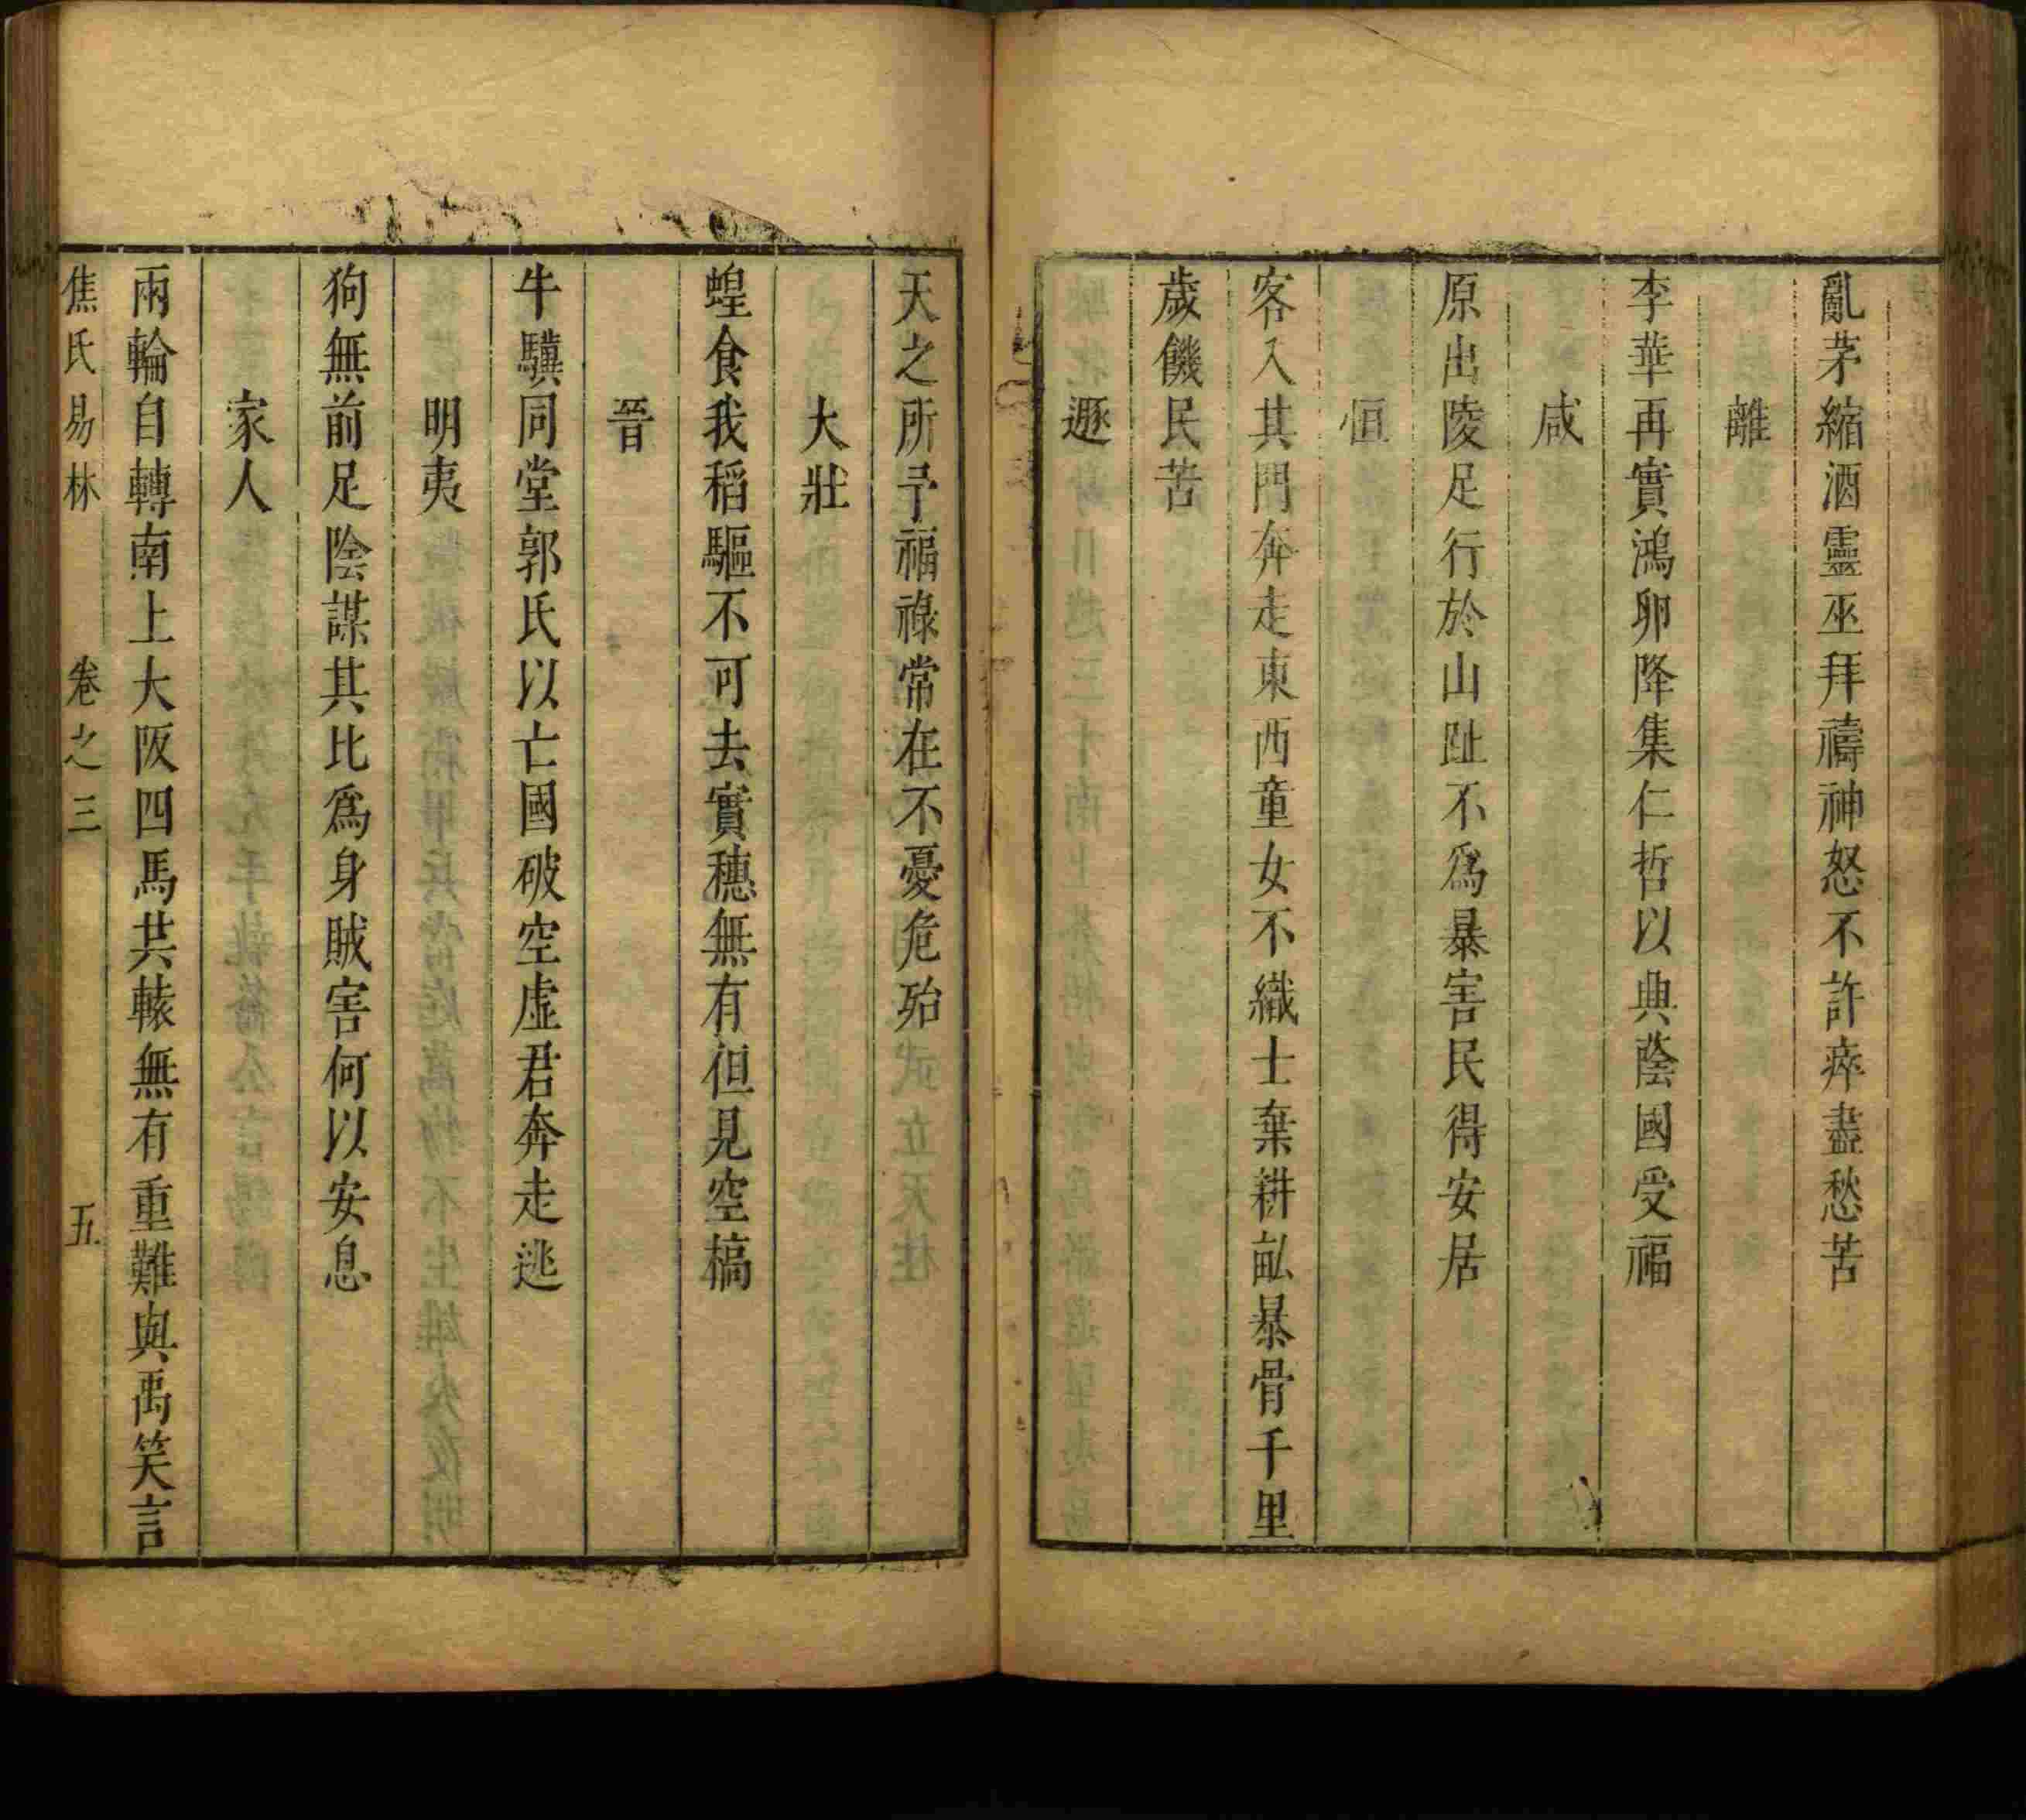 亂茅縮酒靈巫拜禱神怒不許瘁盡愁苦
離
李華再實鴻卵降集仁哲以典蔭國受福
咸
原出陵足行於山趾不爲暴害民得安居
恒
客入其門奔走東西童女不織士棄耕畝暴骨千里
歲饑民苦
遯
天之所予福祿常在不憂危殆
大壯
蝗食我稻驅不可去實穗無有但見空槁
晉
牛驥同堂郭氏以亡國破空虛君奔走逃
明夷
狗無前足陰謀其比爲身賊害何以安息
家人
兩輪自轉南上大阪四馬共轅無有重難與禹笑言
焦氏易林 卷之三 五